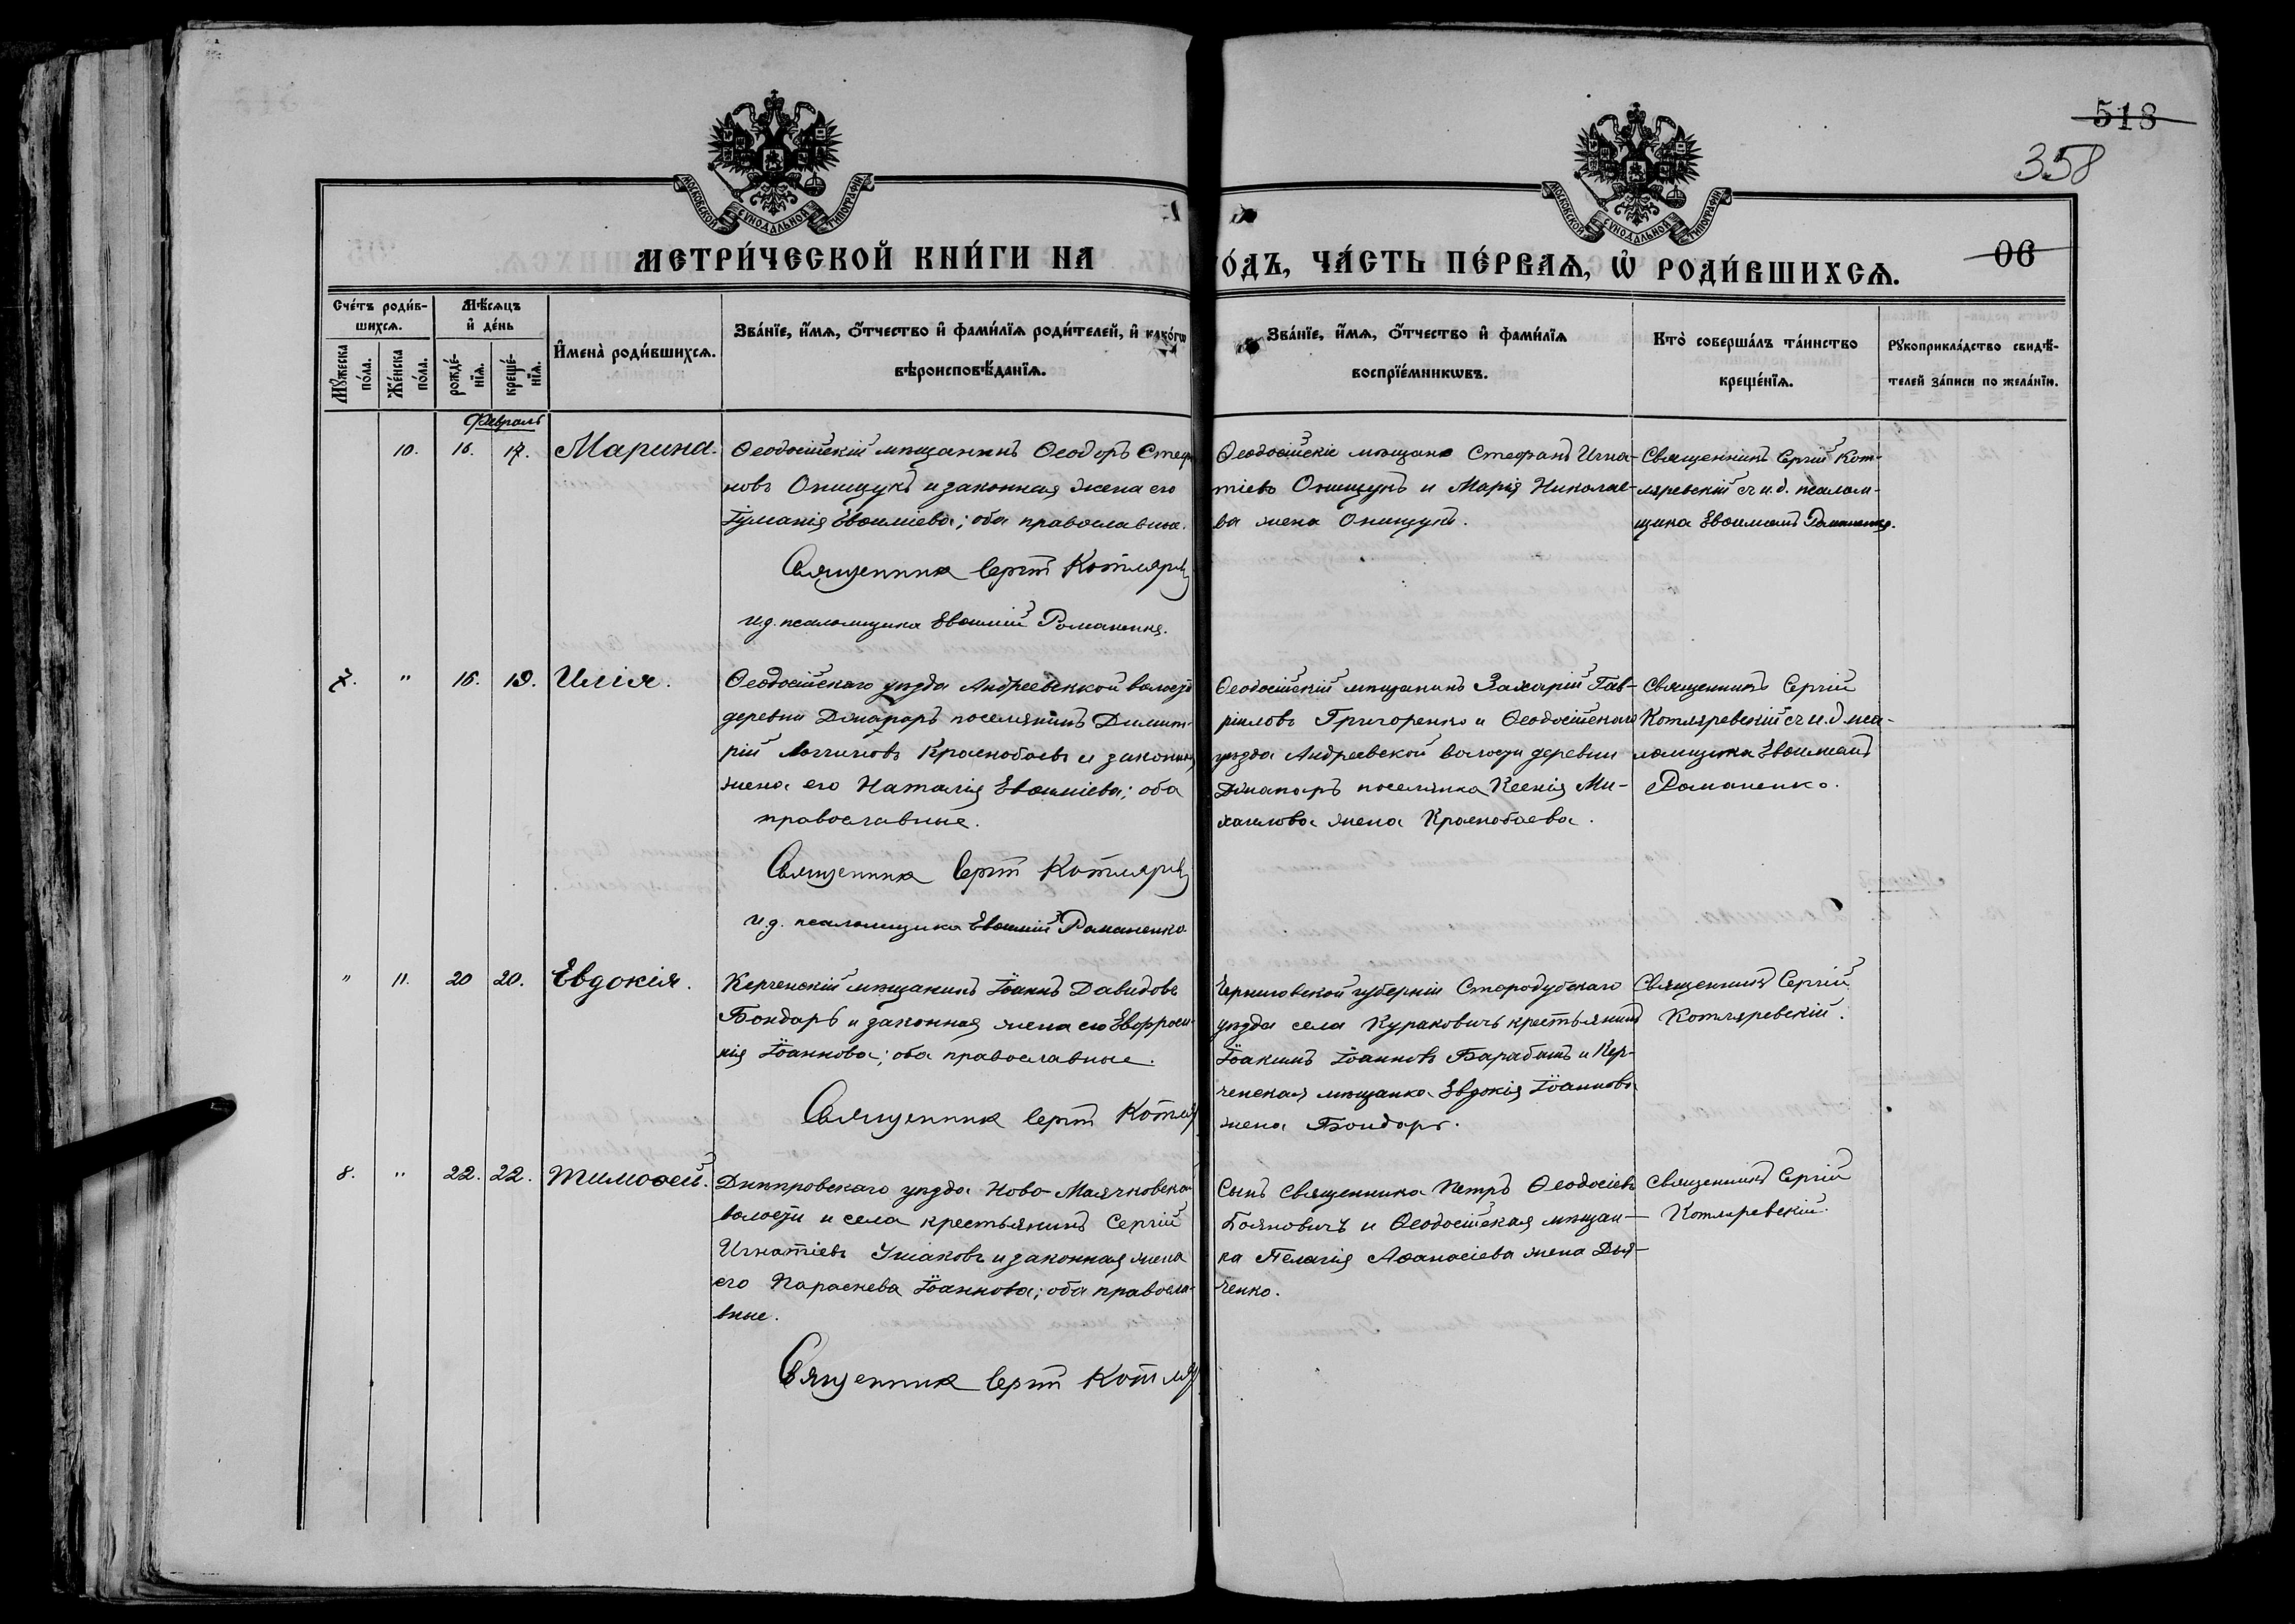 518
358
МОСКОВСКОЙ СѴНОДАЛЬНОЙ ТИПОГРАФІИ
МОСКОВСКОЙ СѴНОДАЛЬНОЙ ТИПОГРАФІИ
МЕТРИ́ЧЕСКОЙ КНИ́ГИ НА
О́ДЪ, ЧА́СТЬ ПЕ́РВАѦ, Ѡ҆ РОДИ́ВШИХСѦ.
06
Сче́тъ роди́в-
шихсѧ.
Мꙋ́жеска по́ла.
Же́нска по́ла.
Мѣ́сѧцъ
и҆ де́нь
рожде́-
нїѧ.
креще́-
нїѧ.
И҆мена̀ роди́вшихсѧ.
Зва́нїе, и҆́мѧ, ѻ҆́тчество и҆ фами́лїѧ роди́телей, и҆ како́гѡ
вѣроисповѣ́данїѧ.
Зва́нїе, и҆́мѧ, ѻ҆́тчество и҆ фами́лїѧ
воспрїе́мникѡвъ.
Кто̀ соверша́лъ та́инство
креще́нїѧ.
Рꙋкоприкла́дство свидѣ́-
телей за́писи по жела́нїю.
Февраль
10. 16. 17. Марина.
Ѳеодосійскій мѣщанинъ Ѳеодоръ Стефа
новъ Онищукъ и законная жена его
Евѳиміева; оба православные.
Священникъ Сергій Котляре
и.д. псаломщика Евѳимій Романенко.
Ѳеодосійскіе мѣщане Стефанъ Игна-
тіевъ Онищукъ и Марія Николае-
ва жена Онищукъ.
Священникъ Сергій Кот-
ляревскій съ и.д. псалом-
щика Евѳиміемъ Романенко.
7. " 16. 19. Илія.
Ѳеодосійскаго уѣзда Андреевской волости
деревни поселянинъ Димит-
рій Логгиновъ Краснобаевъ и законная
жена его Наталія Евѳиміева; оба
православные.
Священникъ Сергій Котляре
и.д. псаломщика Евѳимій Романенко
Ѳеодосійскій мѣщанинъ Захарій Гав-
ріиловъ Григоренко и Ѳеодосійскаго
уѣзда Андреевской волости деревни
поселянка Ксенія Ми-
хаилова жена Краснобаева.
Священникъ Сергій
Котляревскій съ и.д. пса-
ломщика Евѳиміемъ
Романенко.
" 11. 20 20. Евдокія.
Керченскій мѣщанинъ Іоаннъ Давидовъ
Бондарь и законная жена его Евфроси-
нія Іоаннова; оба православные.
Священникъ Сергій Котля
Черниговской губерніи Стародубскаго
уѣзда села Куракович крестьянинъ
Іоакимъ Іоанновъ Барабашъ и Кер-
ченская мѣщанка Евдокія Іоаннова
жена Бондарь.
Священникъ Сергій
Котляревскій.
8. " 22. 22. Тимоѳей.
Днѣпровскаго уѣзда Ново-Маячковской
волости и села крестьянинъ Сергій
Игнатіевъ Ушаковъ и законная жена
его Параскева Іоаннова; оба правосла-
вные.
Священникъ Сергій Котля
Сынъ священника Петръ Ѳеодосіевъ
Бояновичъ и Ѳеодосійская мѣщан-
ка Пелагія Аѳанасіева жена Дья-
ченко.
Священникъ Сергій
Котляревскій.